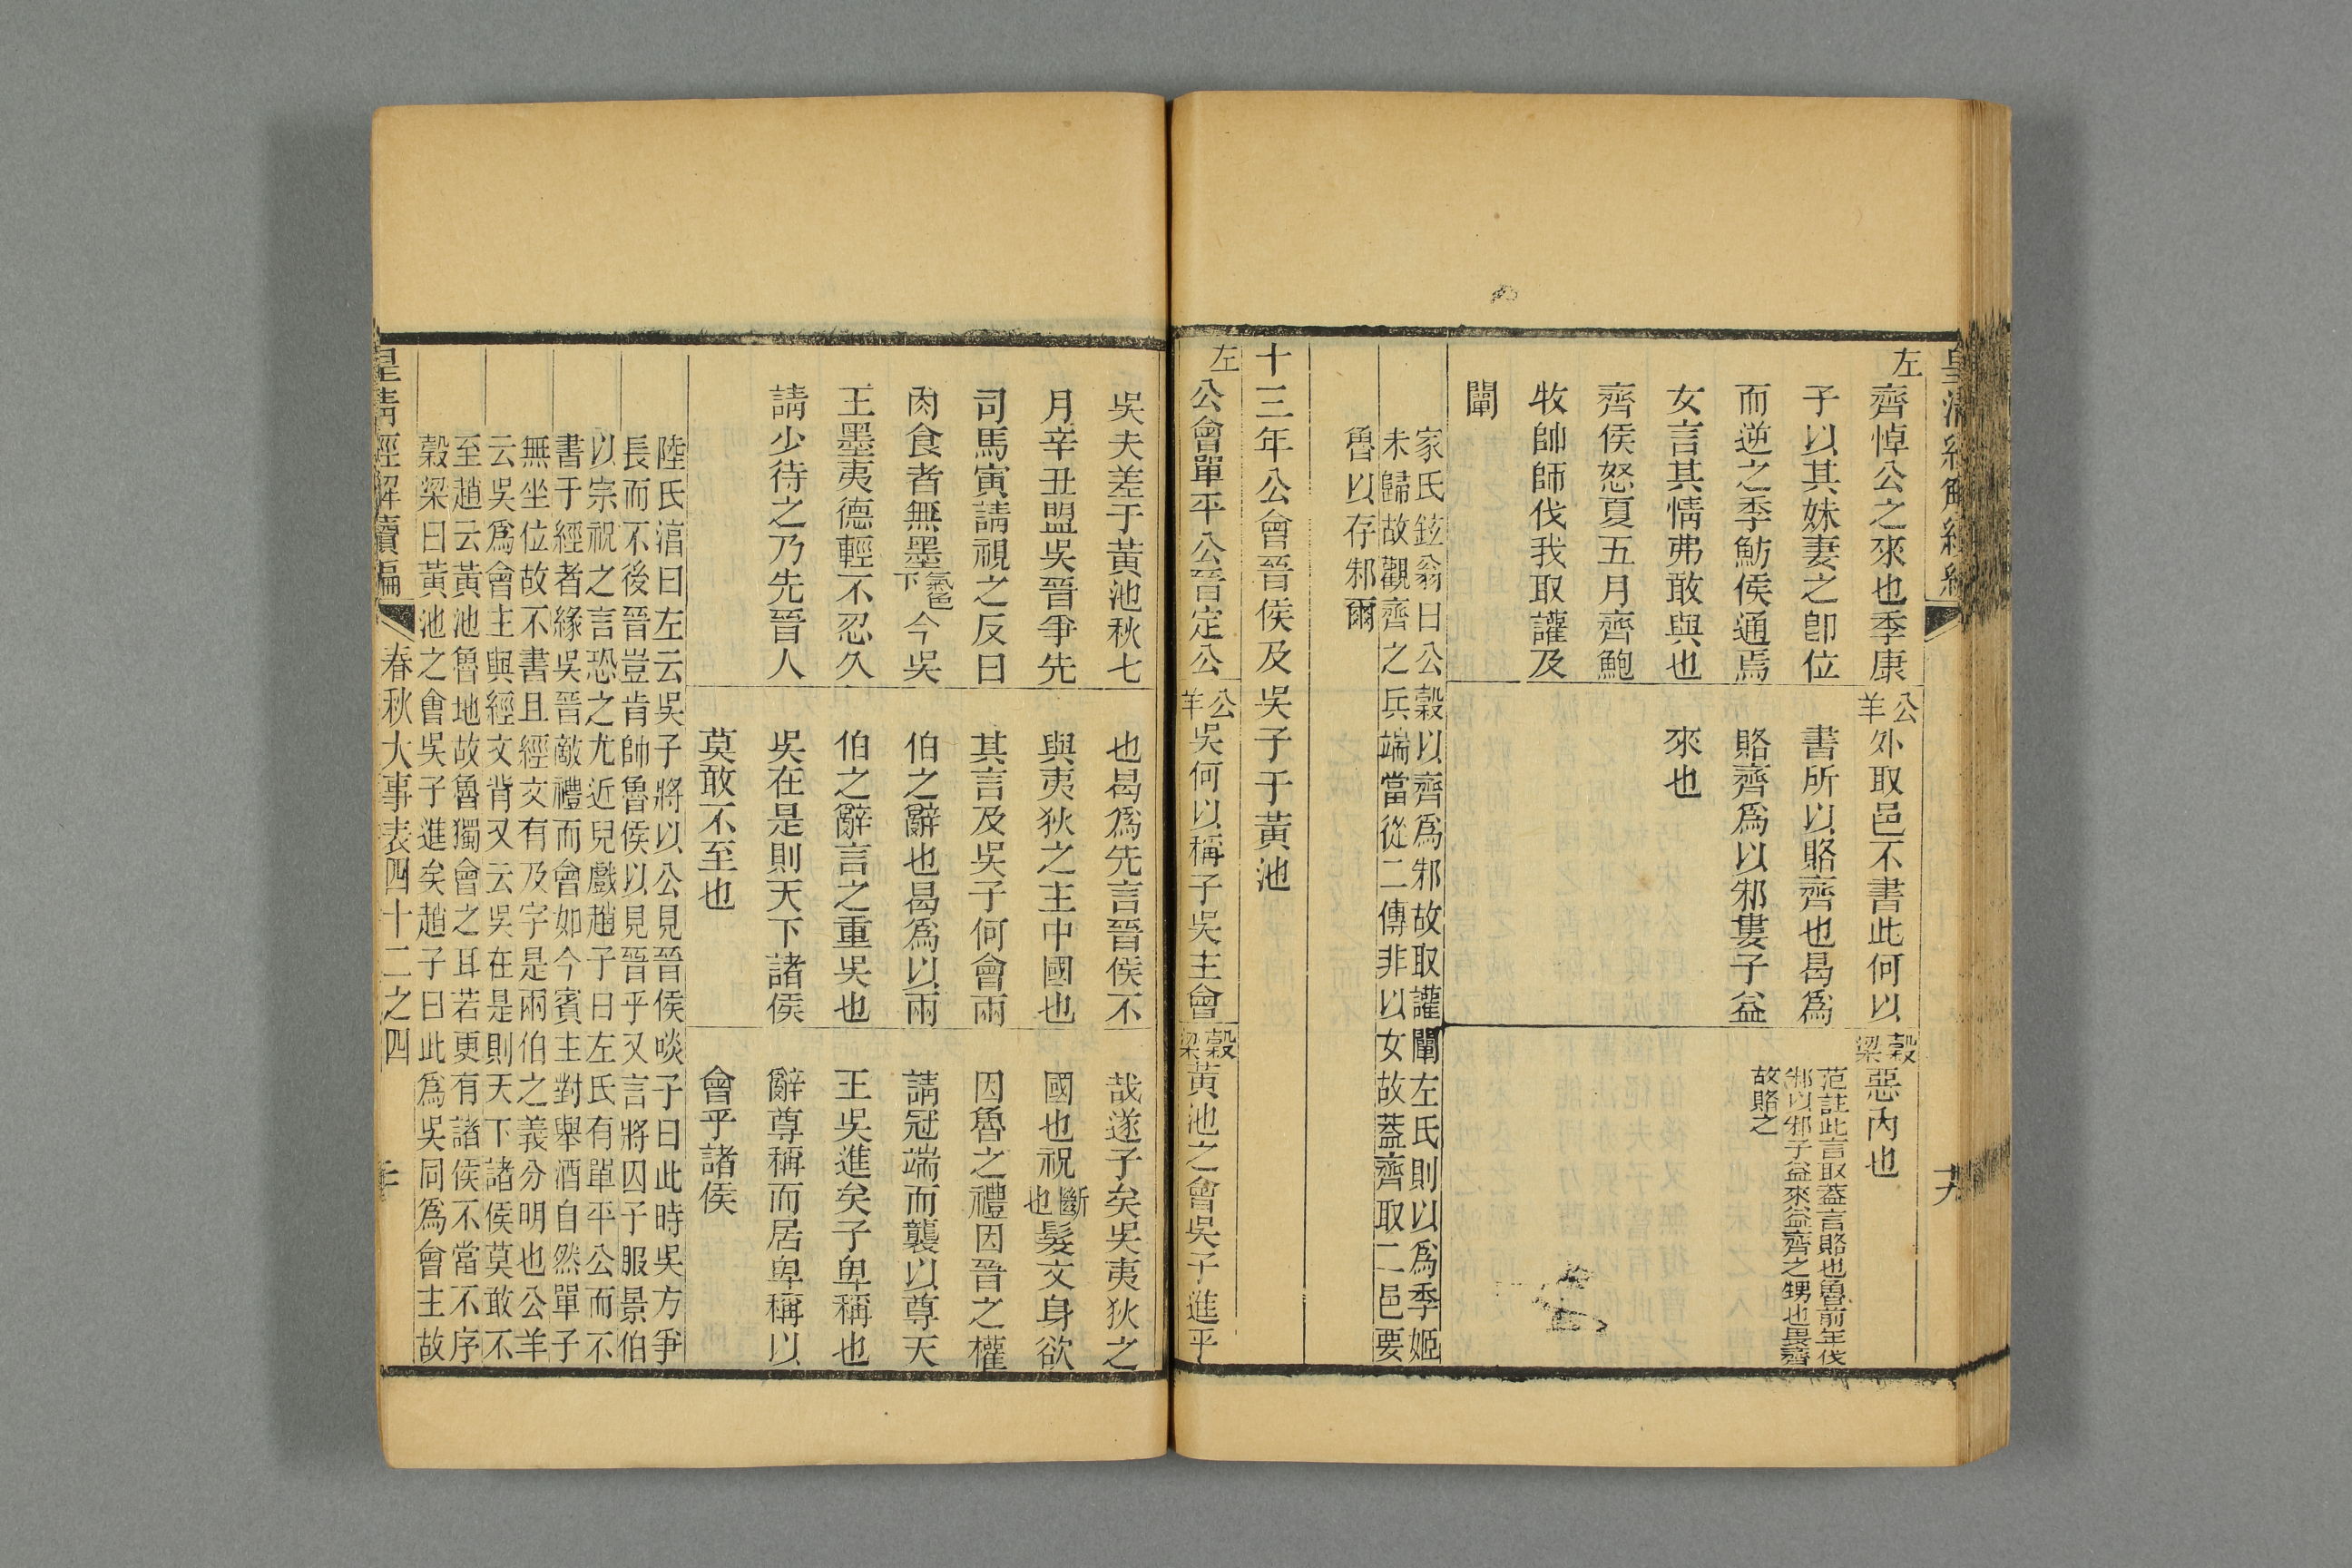 左
齊悼公之來也季康
子以其妹妻之卽位
而逆之季魴侯通焉
女言其情弗敢與也
齊侯怒夏五月齊鮑
牧帥師伐我取讙及
闡
公羊
外取邑不書此何以
書所以賂齊也曷爲
賂齊爲以邾婁子益
來也
穀梁
惡內也
范註此言取蓋言賂也魯前年伐
邾以邾子益來益齊之甥也畏齊
故賂之
家氏鉉翁曰公穀以齊爲邾故取讙闡左氏則以爲季姬
未歸故觀齊之兵端當從二傳非以女故蓋齊取二邑要
魯以存邾爾
十三年公會晉侯及吳子于黃池
左
公會單平公晉定公
公羊
吳何以稱子吳主會
穀梁
黃池之會吳子進乎
十九
吳夫差于黃池秋七
月辛丑盟吳晉爭先
司馬寅請視之反曰
肉食者無墨氣色下今吳
王墨夷德輕不忍久
請少待之乃先晉人
也曷爲先言晉侯不
與夷狄之主中國也
其言及吳子何會兩
伯之辭也曷爲以兩
伯之辭言之重吳也
吳在是則天下諸侯
莫敢不至也
哉遂子矣吳夷狄之
國也祝斷也髮文身欲
因魯之禮因晉之權
請冠端而襲以尊天
王吳進矣子卑稱也
辭尊稱而居卑稱以
會乎諸侯
陸氏淳曰左云吳子將以公見晉侯啖子曰此時吳方爭
長而不後晉豈肯帥魯侯以見晉乎又言將囚子服景伯
以宗祝之言恐之尤近兒戲趙子曰左氏有單平公而不
書于經者緣吳晉敵禮而會如今賓主對舉酒自然單子
無坐位故不書且經文有及字是兩伯之義分明也公羊
云吳爲會主與經文背又云吳在是則天下諸侯莫敢不
至趙云黃池魯地故魯獨會之耳若更有諸侯不當不序
穀梁曰黃池之會吳子進矣趙子曰此爲吳同爲會主故
皇清經解續編
春秋大事表四十二之四